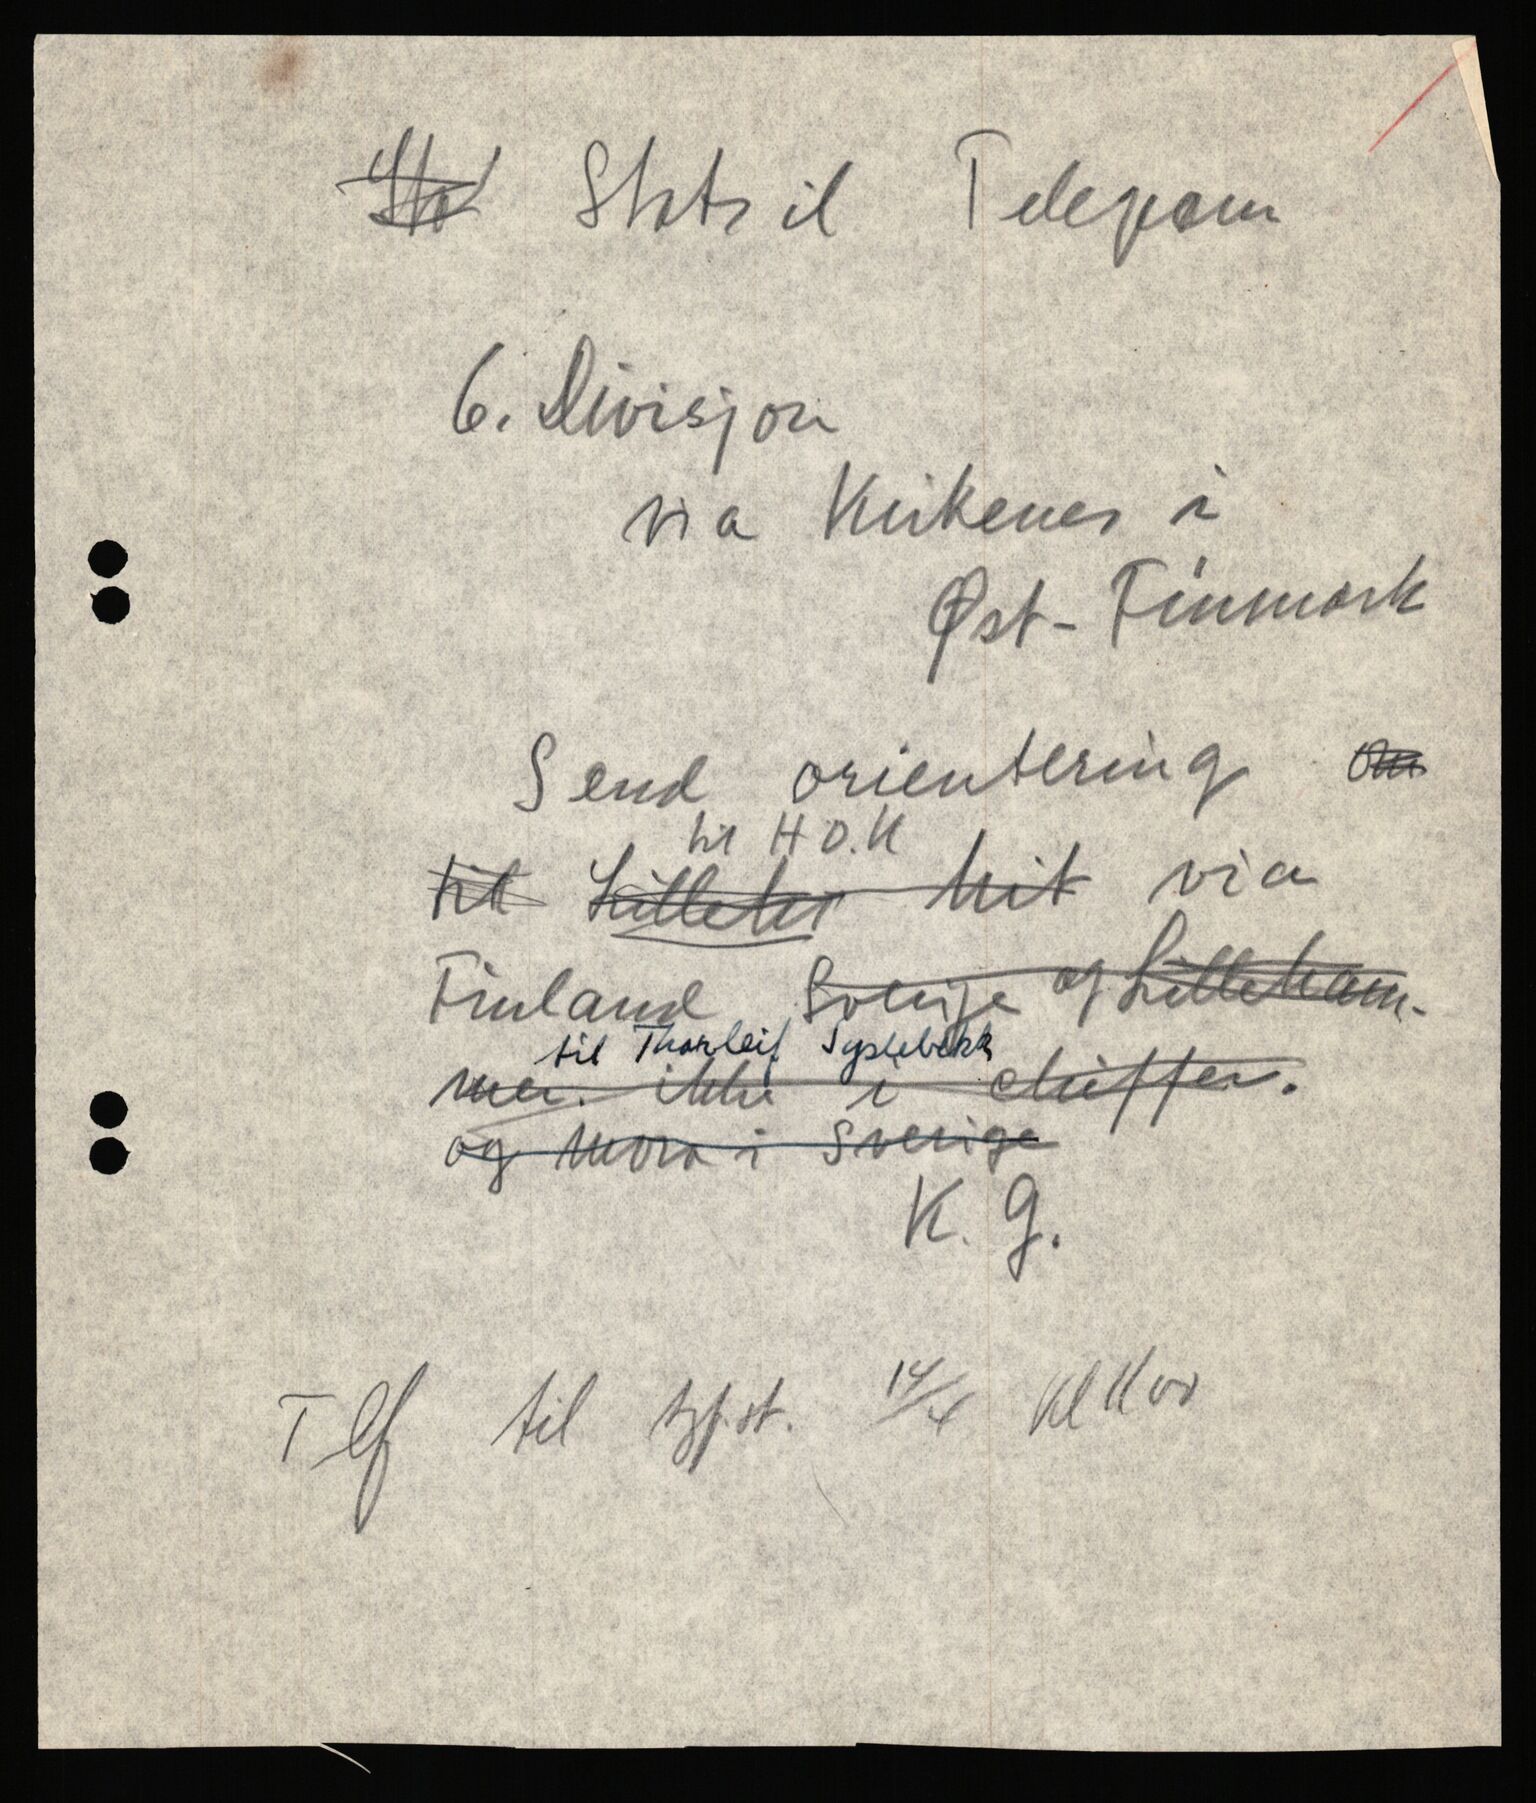 Sta Statsil Telegram
6. Divisjon
via Kirkenes i
Øst-Finmark
Send orientering om
til H.O.K
til Lilleh hit via
Finland Sverige og Lilleham-
til Thorleif
mer. ikke i chiffer.
og Mora i Sverige
K. G.
Tlf til tgf.st. 14/4 Kl